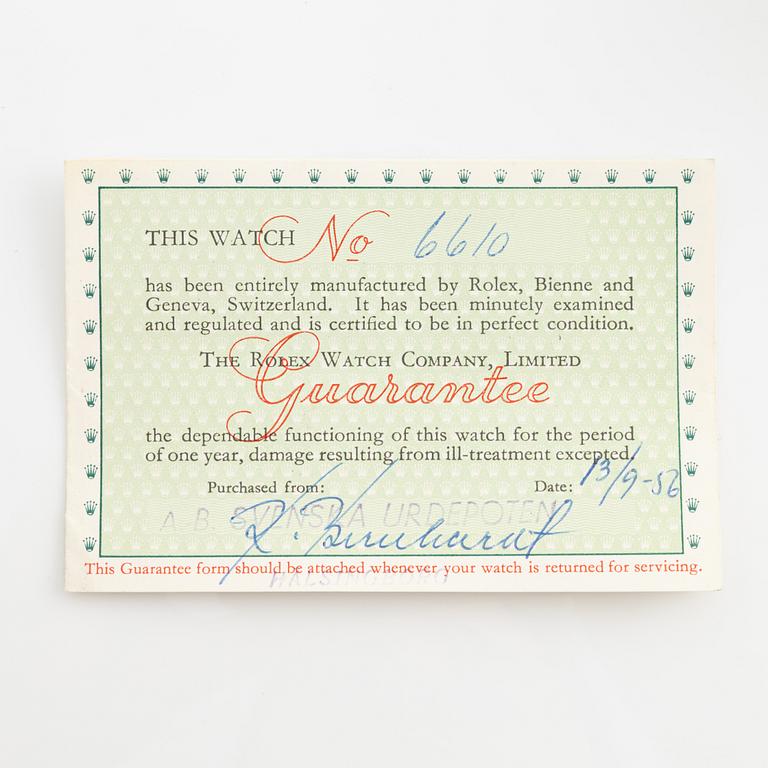 THIS WATCH No 6610
has been entirely manufactured by Rolex, Bienne and
Geneva, Switzerland. It has been minutely examined
and regulated and is certified to be in perfect condition.
THE ROLEX WATCH COMPANY, LIMITED
Guarantee
the dependable functioning of this watch for the period
of one year, damage resulting from ill-treatment excepted.
Purchased from: Date: 13/9-56
A.B. SVENSKA URDEPOTEN
K. Bernhardt
HÄLSINGBORG
This Guarantee form should be attached whenever your watch is returned for servicing.